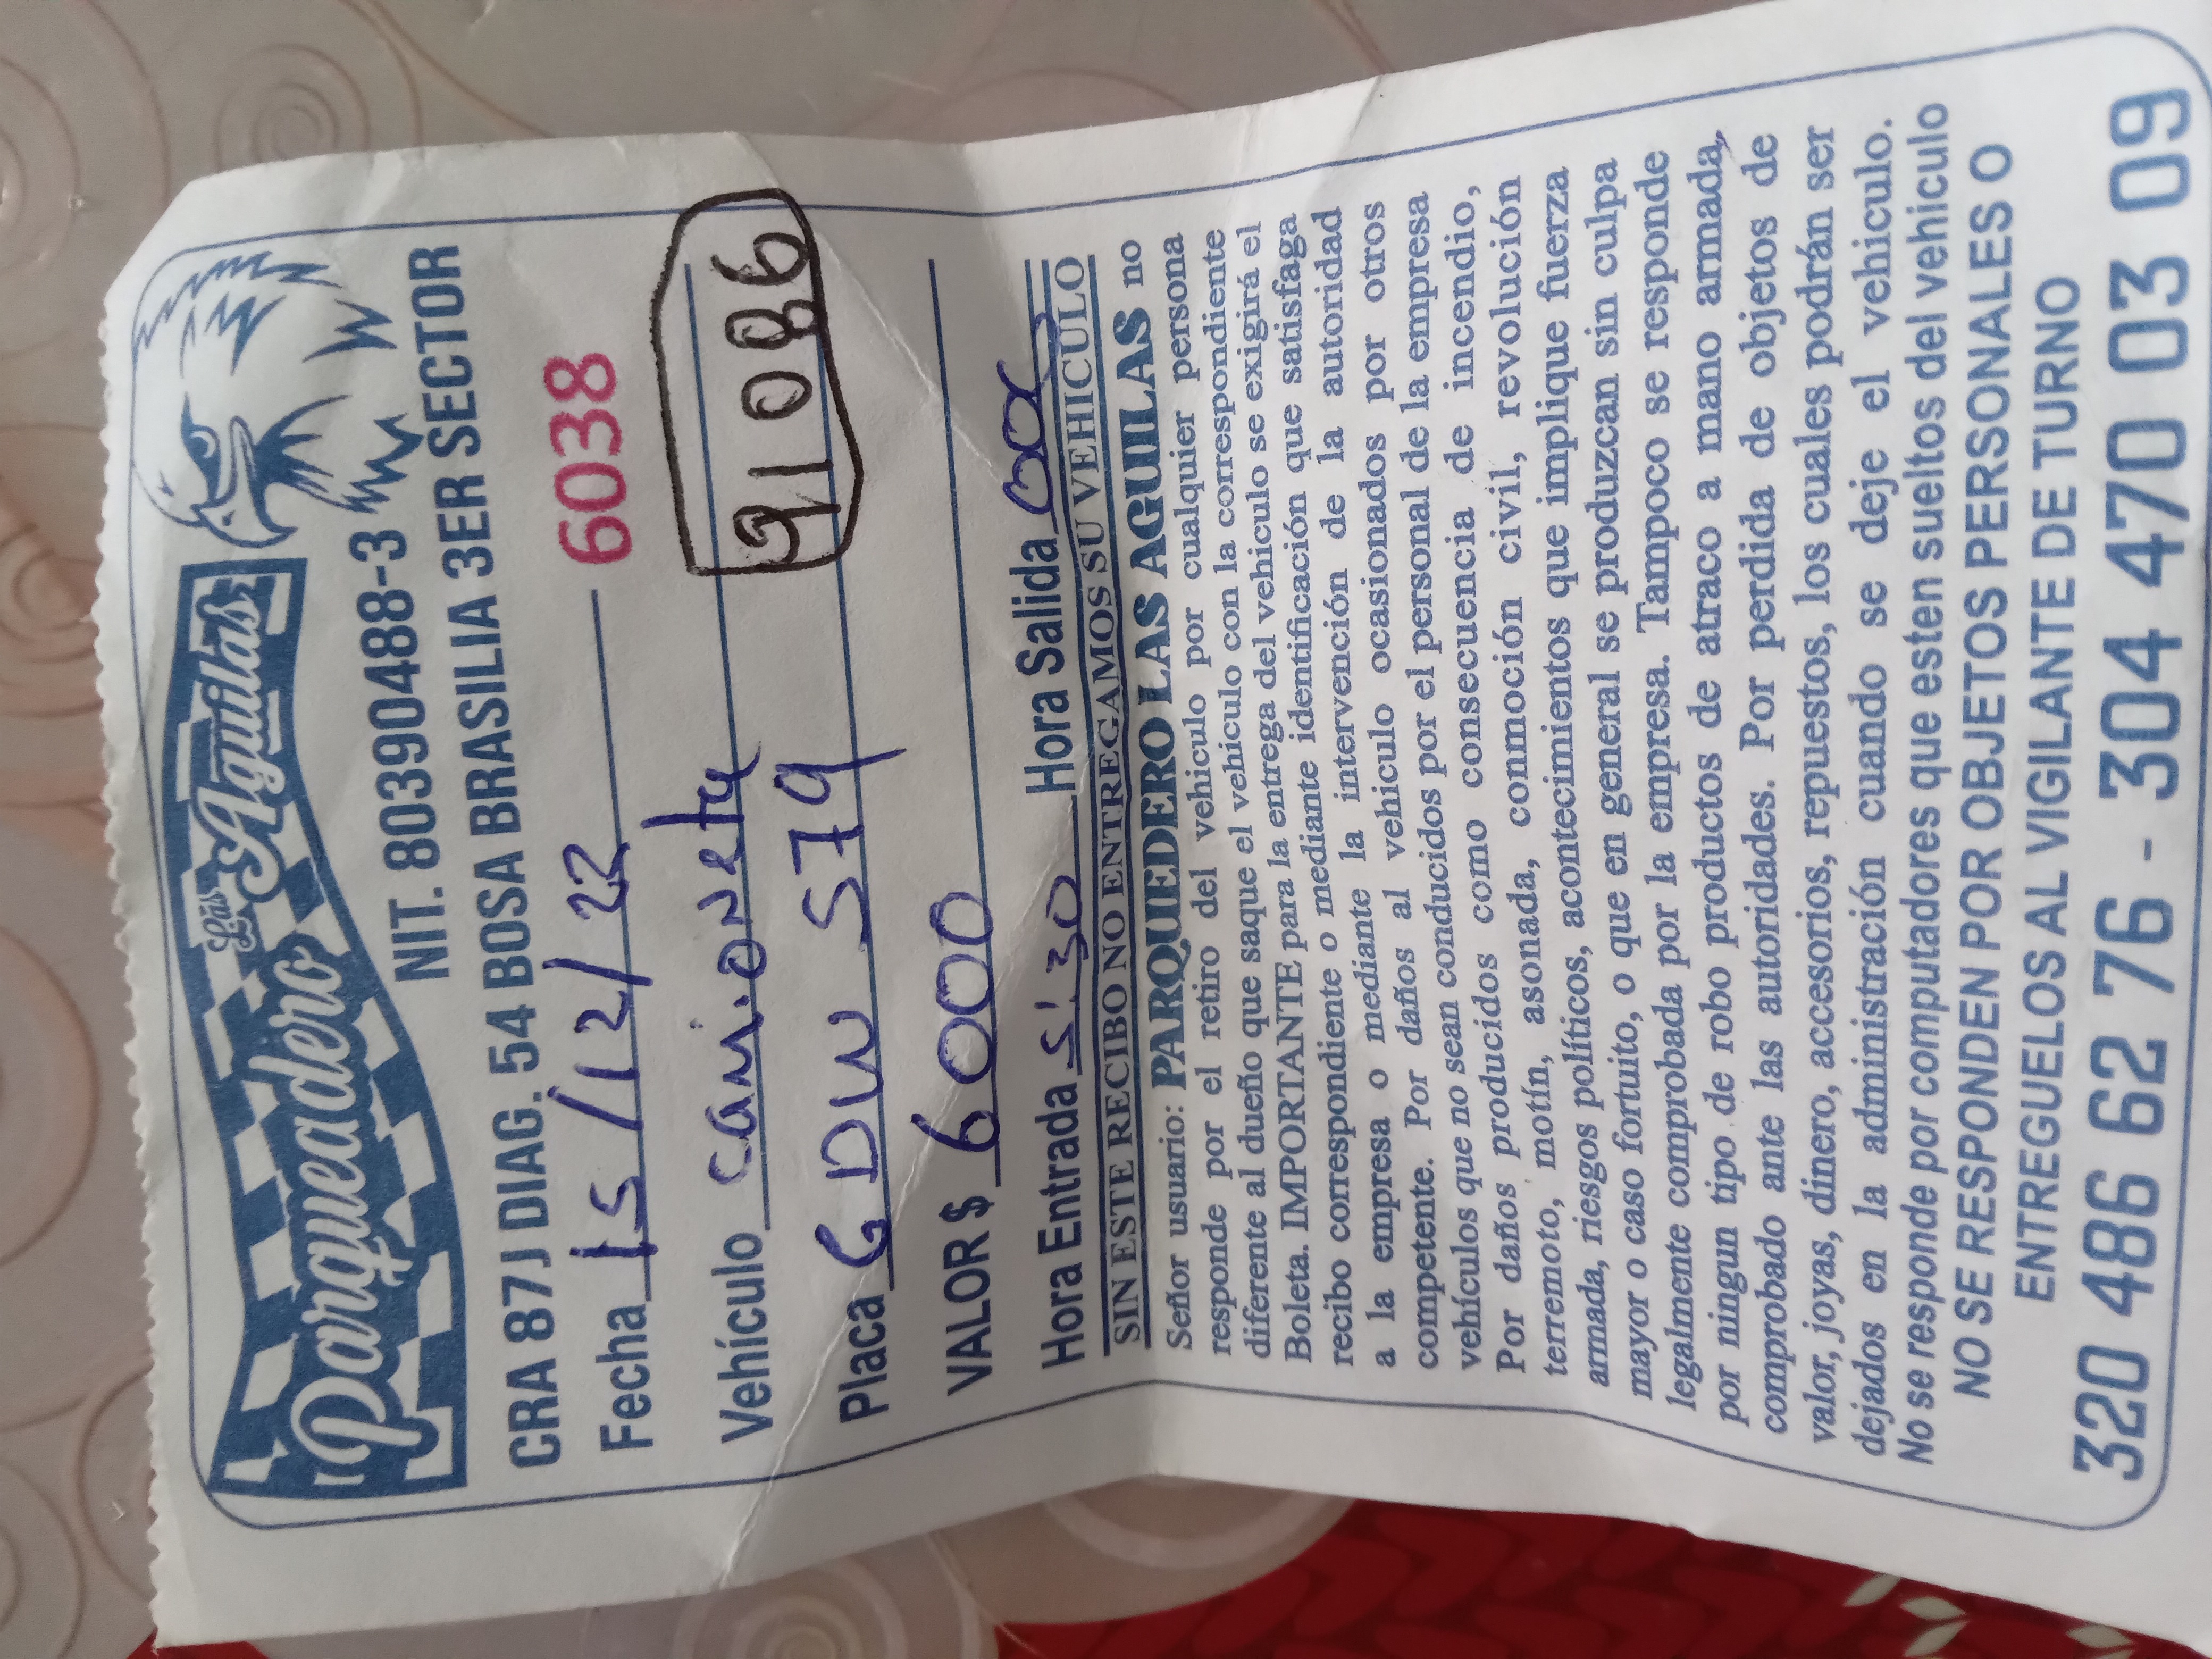 Parqueadero Las Aguilas
NIT. 80390488-3
CRA 87J DIAG. 54 BOSA BRASILIA 3ER SECTOR
Fecha 15/12/22 6038
Vehículo camioneta
91086
Placa GDW 579
VALOR $ 6000
Hora Entrada 5:30 Hora Salida
SIN ESTE RECIBO NO ENTREGAMOS SU VEHICULO
Señor usuario: PARQUEDERO LAS AGUILAS no
responde por el retiro del vehículo por cualquier persona
diferente al dueño que saque el vehículo con la correspondiente
Boleta. IMPORTANTE para la entrega del vehículo se exigirá el
recibo correspondiente o mediante identificación que satisfaga
a la empresa o mediante la intervención de la autoridad
competente. Por daños al vehículo ocasionados por otros
vehículos que no sean conducidos por el personal de la empresa
Por daños producidos como consecuencia de incendio,
terremoto, motín, asonada, conmoción civil, revolución
armada, riesgos políticos, acontecimientos que implique fuerza
mayor o caso fortuito, o que en general se produzcan sin culpa
legalmente comprobada por la empresa. Tampoco se responde
por ningun tipo de robo productos de atraco a mano armada,
comprobado ante las autoridades. Por perdida de objetos de
valor, joyas, dinero, accesorios, repuestos, los cuales podrán ser
dejados en la administración cuando se deje el vehiculo.
No se responde por computadores que esten sueltos del vehiculo
NO SE RESPONDEN POR OBJETOS PERSONALES O
ENTREGUELOS AL VIGILANTE DE TURNO
320 486 62 76 - 304 470 03 09